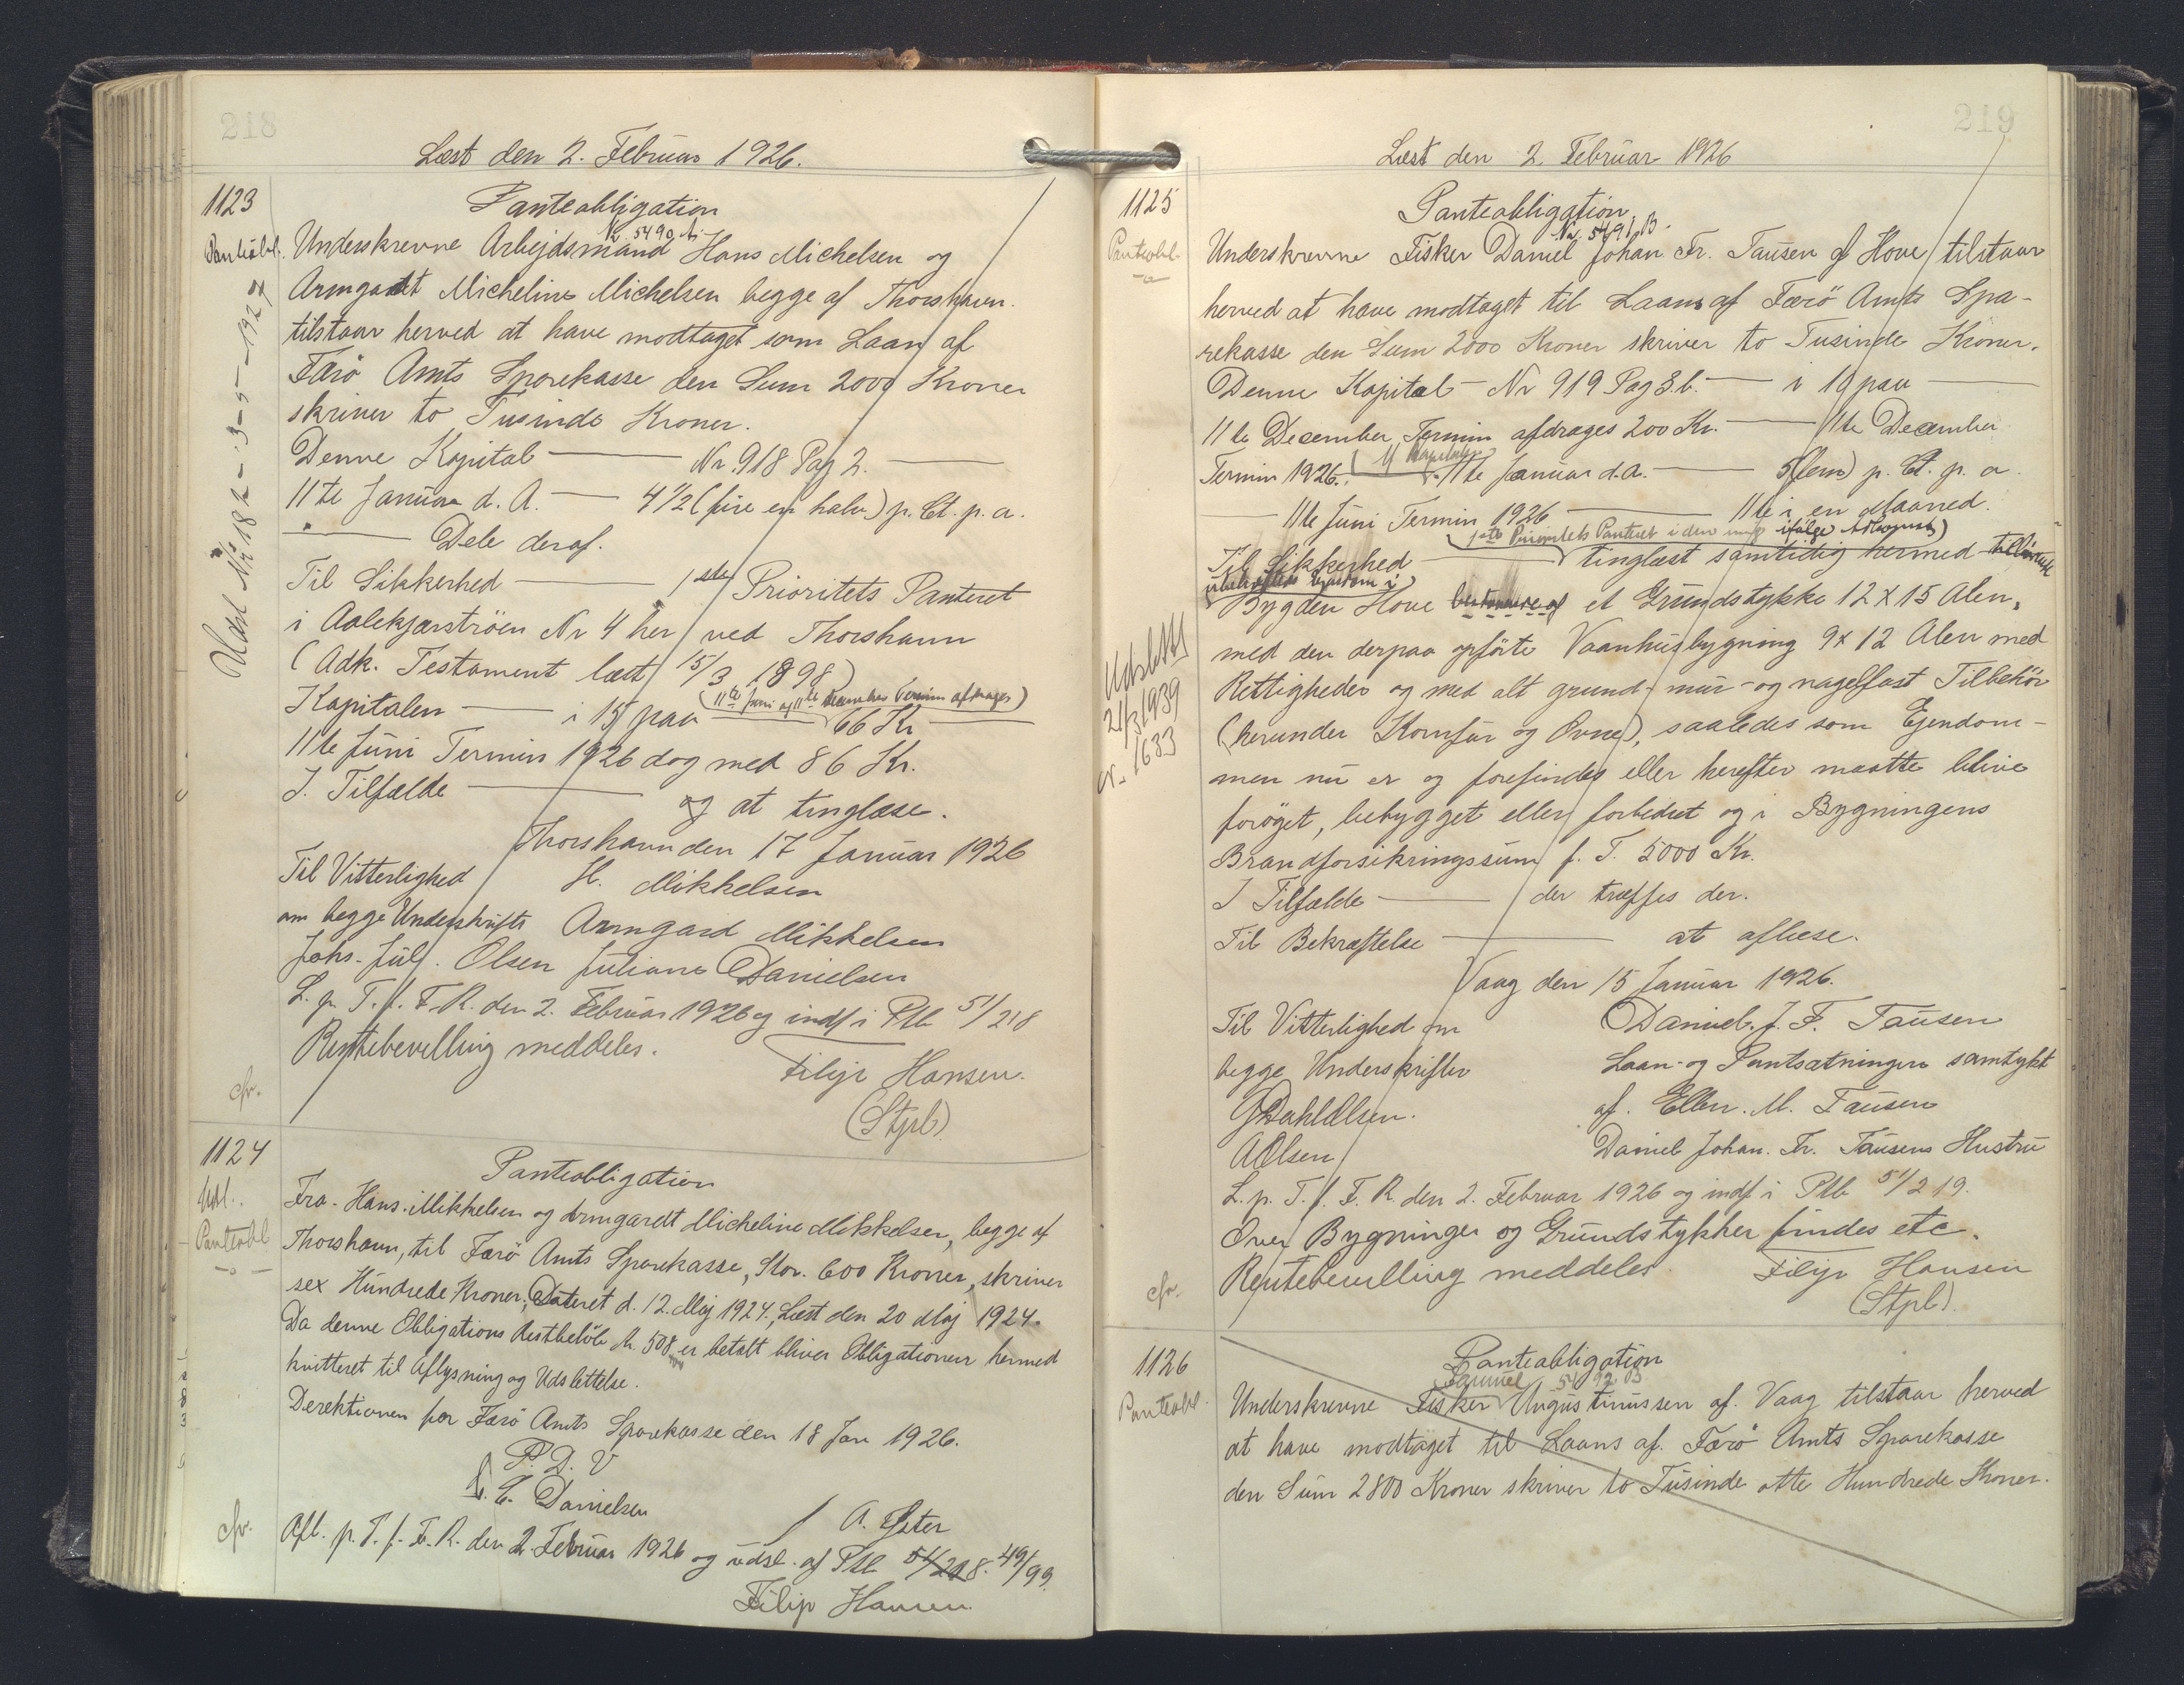 218
Læst den 2. Februar 1926.
1123
Panteobl.
Panteobligation
Nr. 5490
Underskrevne Arbejdsmand Hans Michelsen og
Armgardt Micheline Michelsen begge af Thorshavn.
tilstaar herved at have modtaget som Laan af
Færö Amts Sparekasse den Sum 2000 Kroner
skriver to Tusinde Kroner.
Denne Kapital — Nr. 918 Pag 2. —
11te Januar d. A. — 4 1/2 (fire en halv) p. Ct. p. a.
— Dele deraf.
Til Sikkerhed — 1ste Prioritets Panteret
i Aalekjærströen Nr 4 her ved Thorshavn
(Adk. Testament læst 15/3 1898)
(11te Juni og 11te December Termin afdrages)
Kapitalen — i 15 paa — 66 Kr —
11te Juni Termin 1926 dog med 86 Kr.
I Tilfælde — og at tinglæse.
Thorshavn den 17 Januar 1926
Til Vitterlighed H. Mikkelsen
om begge Underskrifter Armgard Mikkelsen
Johs. Jul. Olsen Juliane Danielsen
L. p. T. f. F. R. den 2. Februar 1926 og indf i Ptb 51/218
Rentebevilling meddeles.
Filip Hansen.
(Stpl)
cfr.
1124
Udsl.
Panteobl
Panteobligation
Fra Hans Mikkelsen og Armgardt Micheline Mikkelsen, begge af
Thorshavn, til Færö Amts Sparekasse, Stor. 600 Kroner, skriver
sex Hundrede Kroner, Dateret d. 12. Maj 1924., Læst den 20 Maj 1924.
Da denne Obligations Restbelöb Kr. 508 er betalt bliver Obligationen hermed
kvitteret til Aflysning og Udslettelse.
Derektionen for Færö Amts Sparekasse den 18 Jan 1926.
P. D. V
C. Danielsen / A. Ester
cfr.
Afl. p. T. f. F. R. den 2. Februar 1926 og udsl. af Ptb 51/218. 49/99
Filip Hansen
219
Læst den 2. Februar 1926
1125
Panteobl.
Panteobligation.
Nr. 5491 B.
Underskrevne Fisker Daniel Johan Fr. Tausen af Hove tilstaar
herved at have modtaget til Laans af Færö Amts Spa-
rekasse den Sum 2000 Kroner skriver to Tusinde Kroner.
Denne Kapital — Nr 919 Pag 3. b. — i 10 paa —
11te December Termin afdrages 200 Kr. — 11te December
Termin 1926. — 11te Januar d. a. — 5 (fem) p. Ct. p. a.
— 11te Juni Termin 1926 — 11te i en Maaned.
(1ste Prioritets Panteret i den mig ifölge Adkomst)
Til Sikkerhed — tinglæst samtidig hermed tilhörende
ubehæftede Ejendom i
Bygden Hove bestaaende af et Grundstykke 12 x 15 Alen,
med den derpaa opförte Vaanhusbygning 9 x 12 Alen med
Rettigheder og med alt grund- mur- og nagelfast Tilbehör
(herunder Komfur og Ovne), saaledes som Ejendom-
men nu er og forefindes eller herefter maatte blive
forøget, bebygget eller forbedret og i Bygningens
Brandforsikringssum f. T. 5000 Kr.
I Tilfælde — der træffes der.
Til Bekræftelse — at aflæse.
Vaag den 15 Januar 1926.
Til Vitterlighed om Daniel. J. F. Tausen
begge Underskrifter Laan- og Pantsætningen samtykt
G Dahl Olsen. af. Ellen. M. Tausen
A Olsen Daniel Johan. Fr. Tausens Hustru
L. p. T. f. F. R. den 2. Februar 1926 og indf. i Ptb 51/219.
Over Bygninger og Grundstykker findes etc.
Rentebevilling meddeles. Filip Hansen
(Stpl).
cfr.
Udslettet
21/3 1939
cr. 1633
1126
Panteobl.
Panteobligation
Samuel 5492 B
Underskrevne Fisker Augustinussen af. Vaag tilstaar herved
at have modtaget til Laans af. Færö Amts Sparekasse
den Sum 2800 Kroner skriver to Tusinde otte Hundrede Kroner.